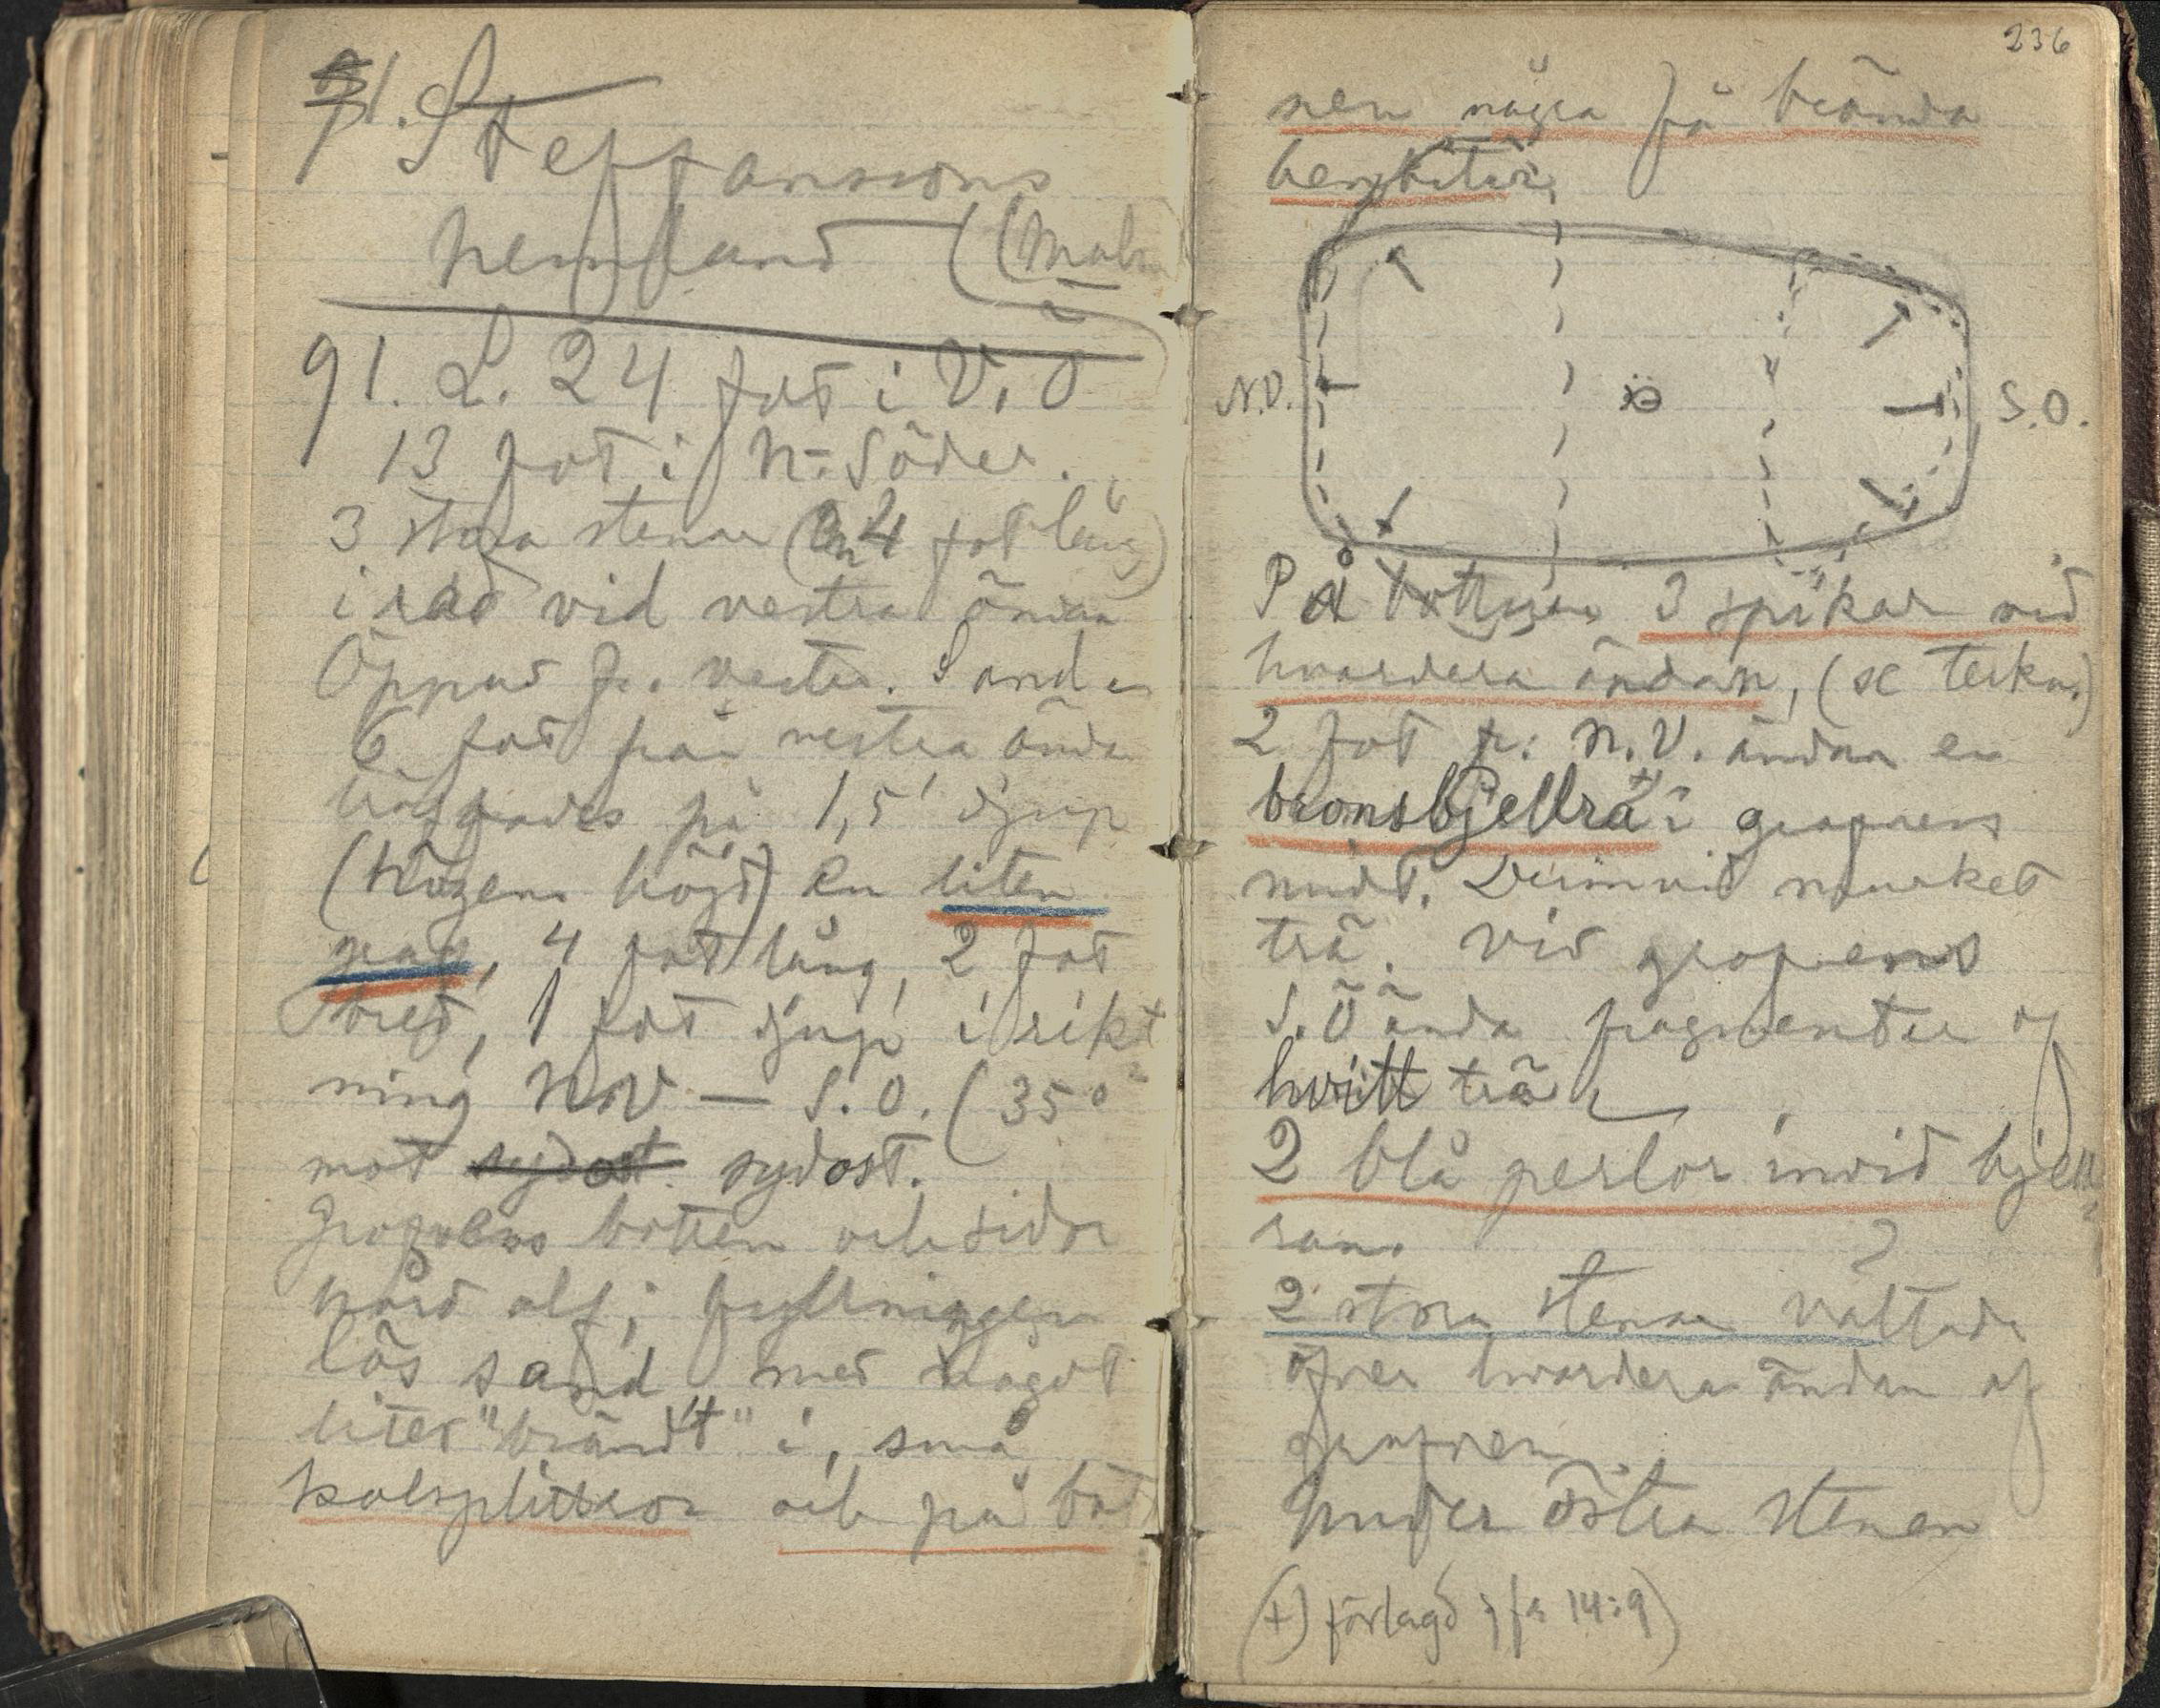 91. Steffanssons
hemland (Malm
91. L. 24 fot i V. Ö
13 fot i N-Söder.
3 stora stenar (en 4 fot lång)
i rad vid vestra ändan
Öppnad fr. vester. Sand en
6 fot från vestra ända
träffades på 1,5' djup
(högens höjd) en liten
grop, 4 fot lång, 2 fot
bred, 1 fot djup i rikt
ning N.V — S.O. (35°
mot sydost sydost.
Gropens botten och sidor
hård alf; fyllningen
lös sand med något
litet "brändt" i, små
kolsplittror och på bot
236
nen några få brända
benbitar.
N.V.
S.O.
På bottnen 3 spikar vid
hvardera ändan, (se tekn.)
2 fot fr. N.V. ändan en
bronsbjellra +) i gropens
midt. Derinvid murket
trä. Vid gropens
S.Ö ända fragmenter af
hvitt trä
2 blå perlor invid bjell
ran.
2 stora stenar vältade
öfver hvardera ändan af
gropen
Under östra stenen
(+) förlagd jfr 14:9)